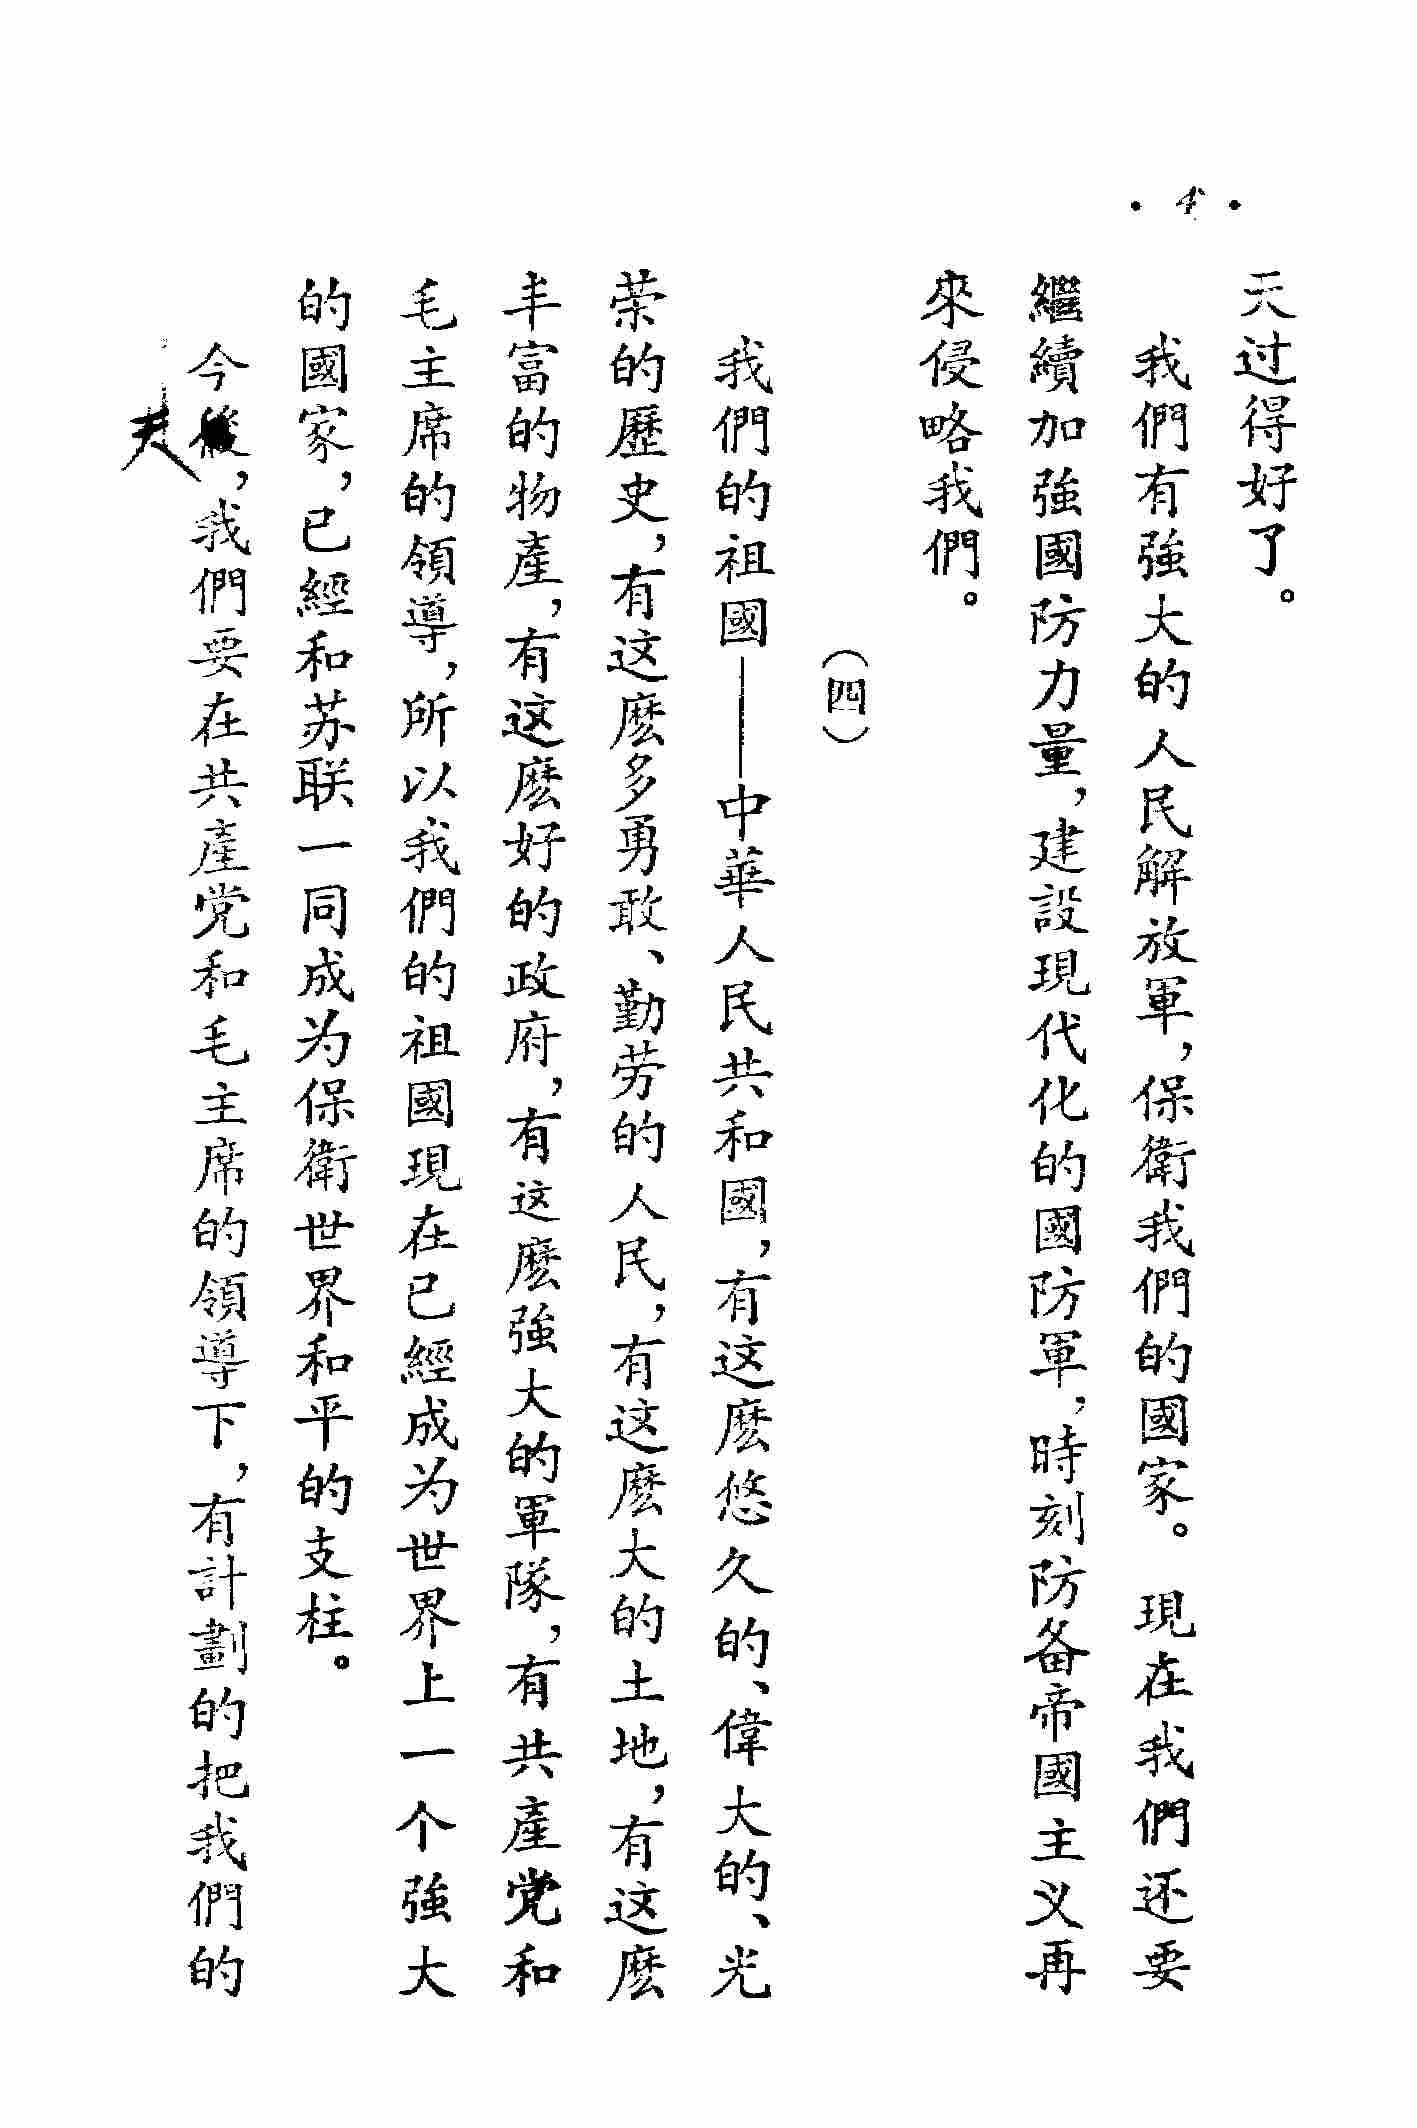 • 4 •
天过得好了。
我們有強大的人民解放軍，保衛我們的國家。現在我們还要
繼續加強國防力量，建設現代化的國防軍，時刻防备帝國主义再
來侵略我們。
（四）
我們的祖國——中華人民共和國，有这麽悠久的、偉大的、光
荣的歷史，有这麽多勇敢、勤劳的人民，有这麽大的土地，有这麽
丰富的物產，有这麽好的政府，有这麽強大的軍隊，有共產党和
毛主席的領導，所以我們的祖國現在已經成为世界上一个強大
的國家，已經和苏联一同成为保衛世界和平的支柱。
今後，我們要在共產党和毛主席的領導下，有計劃的把我們的